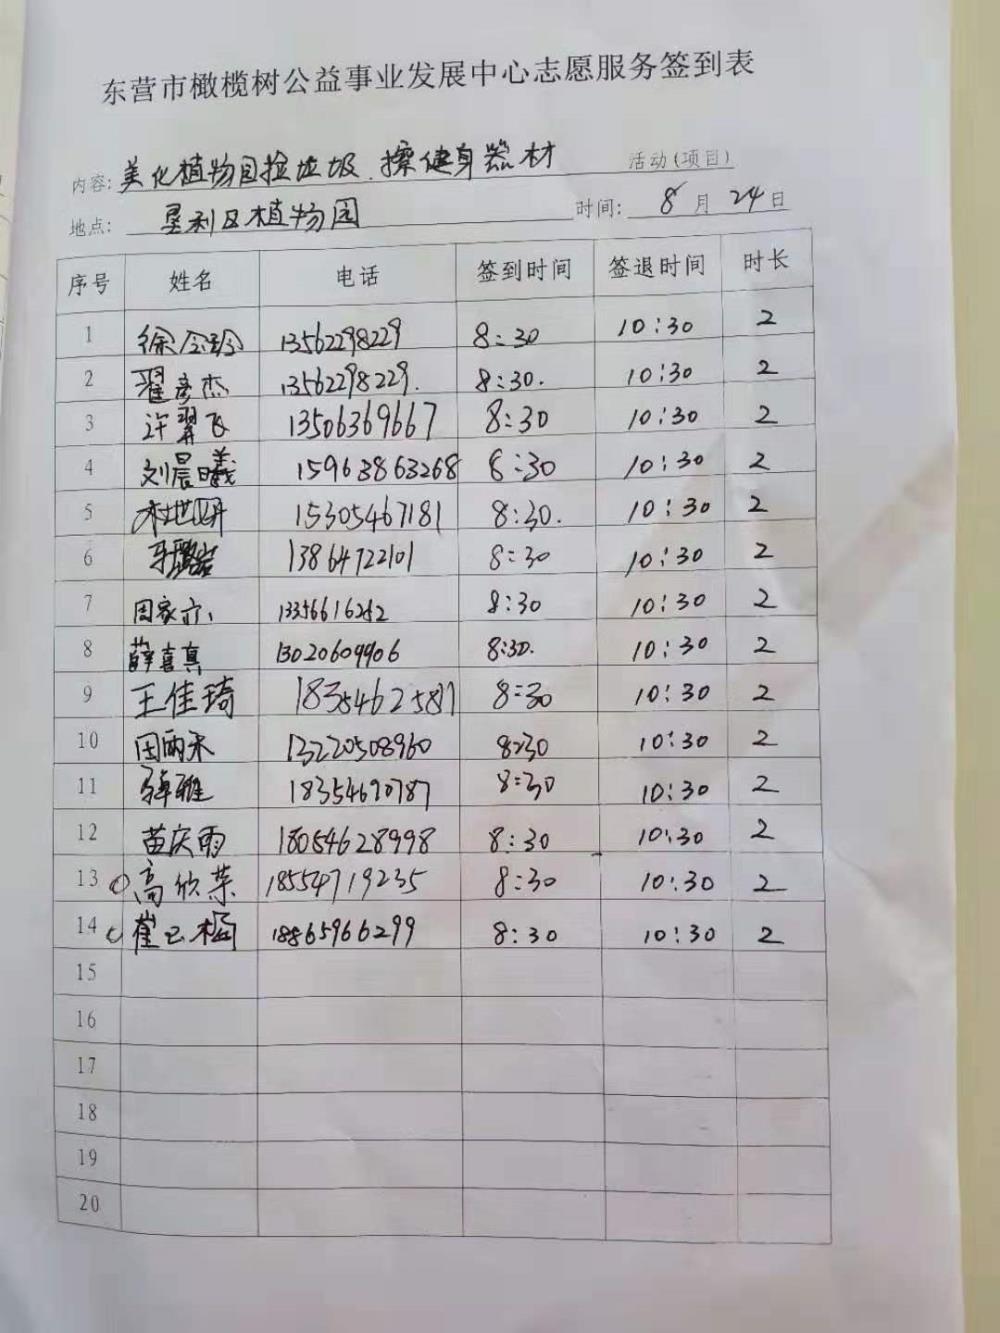 东营市橄榄树公益事业发展中心志愿服务签到表
内容: 美化植物园捡垃圾、擦健身器材 活动(项目)
地点: 垦利区植物园 时间: 8月24日
序号 姓名 电话 签到时间 签退时间 时长
1 徐令玲 13562298229 8:30 10:30 2
2 翟彦杰 13562298229. 8:30. 10:30 2
3 许翼飞 13506369667 8:30 10:30 2
4 刘晨曦 15963863268 8:30 10:30 2
5 15305467181 8:30. 10:30 2
6 13864722101 8:30 10:30 2
7 周家亦 13356616252 8:30 10:30 2
8 薛喜真 13020609906 8:30. 10:30 2
9 王佳琦 18354625817 8:30 10:30 2
10 田雨禾 13220508960 8:30 10:30 2
11 雅 18354690787 8:30 10:30 2
12 苗庆雨 18054628998 8:30 10:30 2
13 高欣荣 18554719235 8:30 10:30 2
14 崔己涵 18865966299 8:30 10:30 2
15
16
17
18
19
20